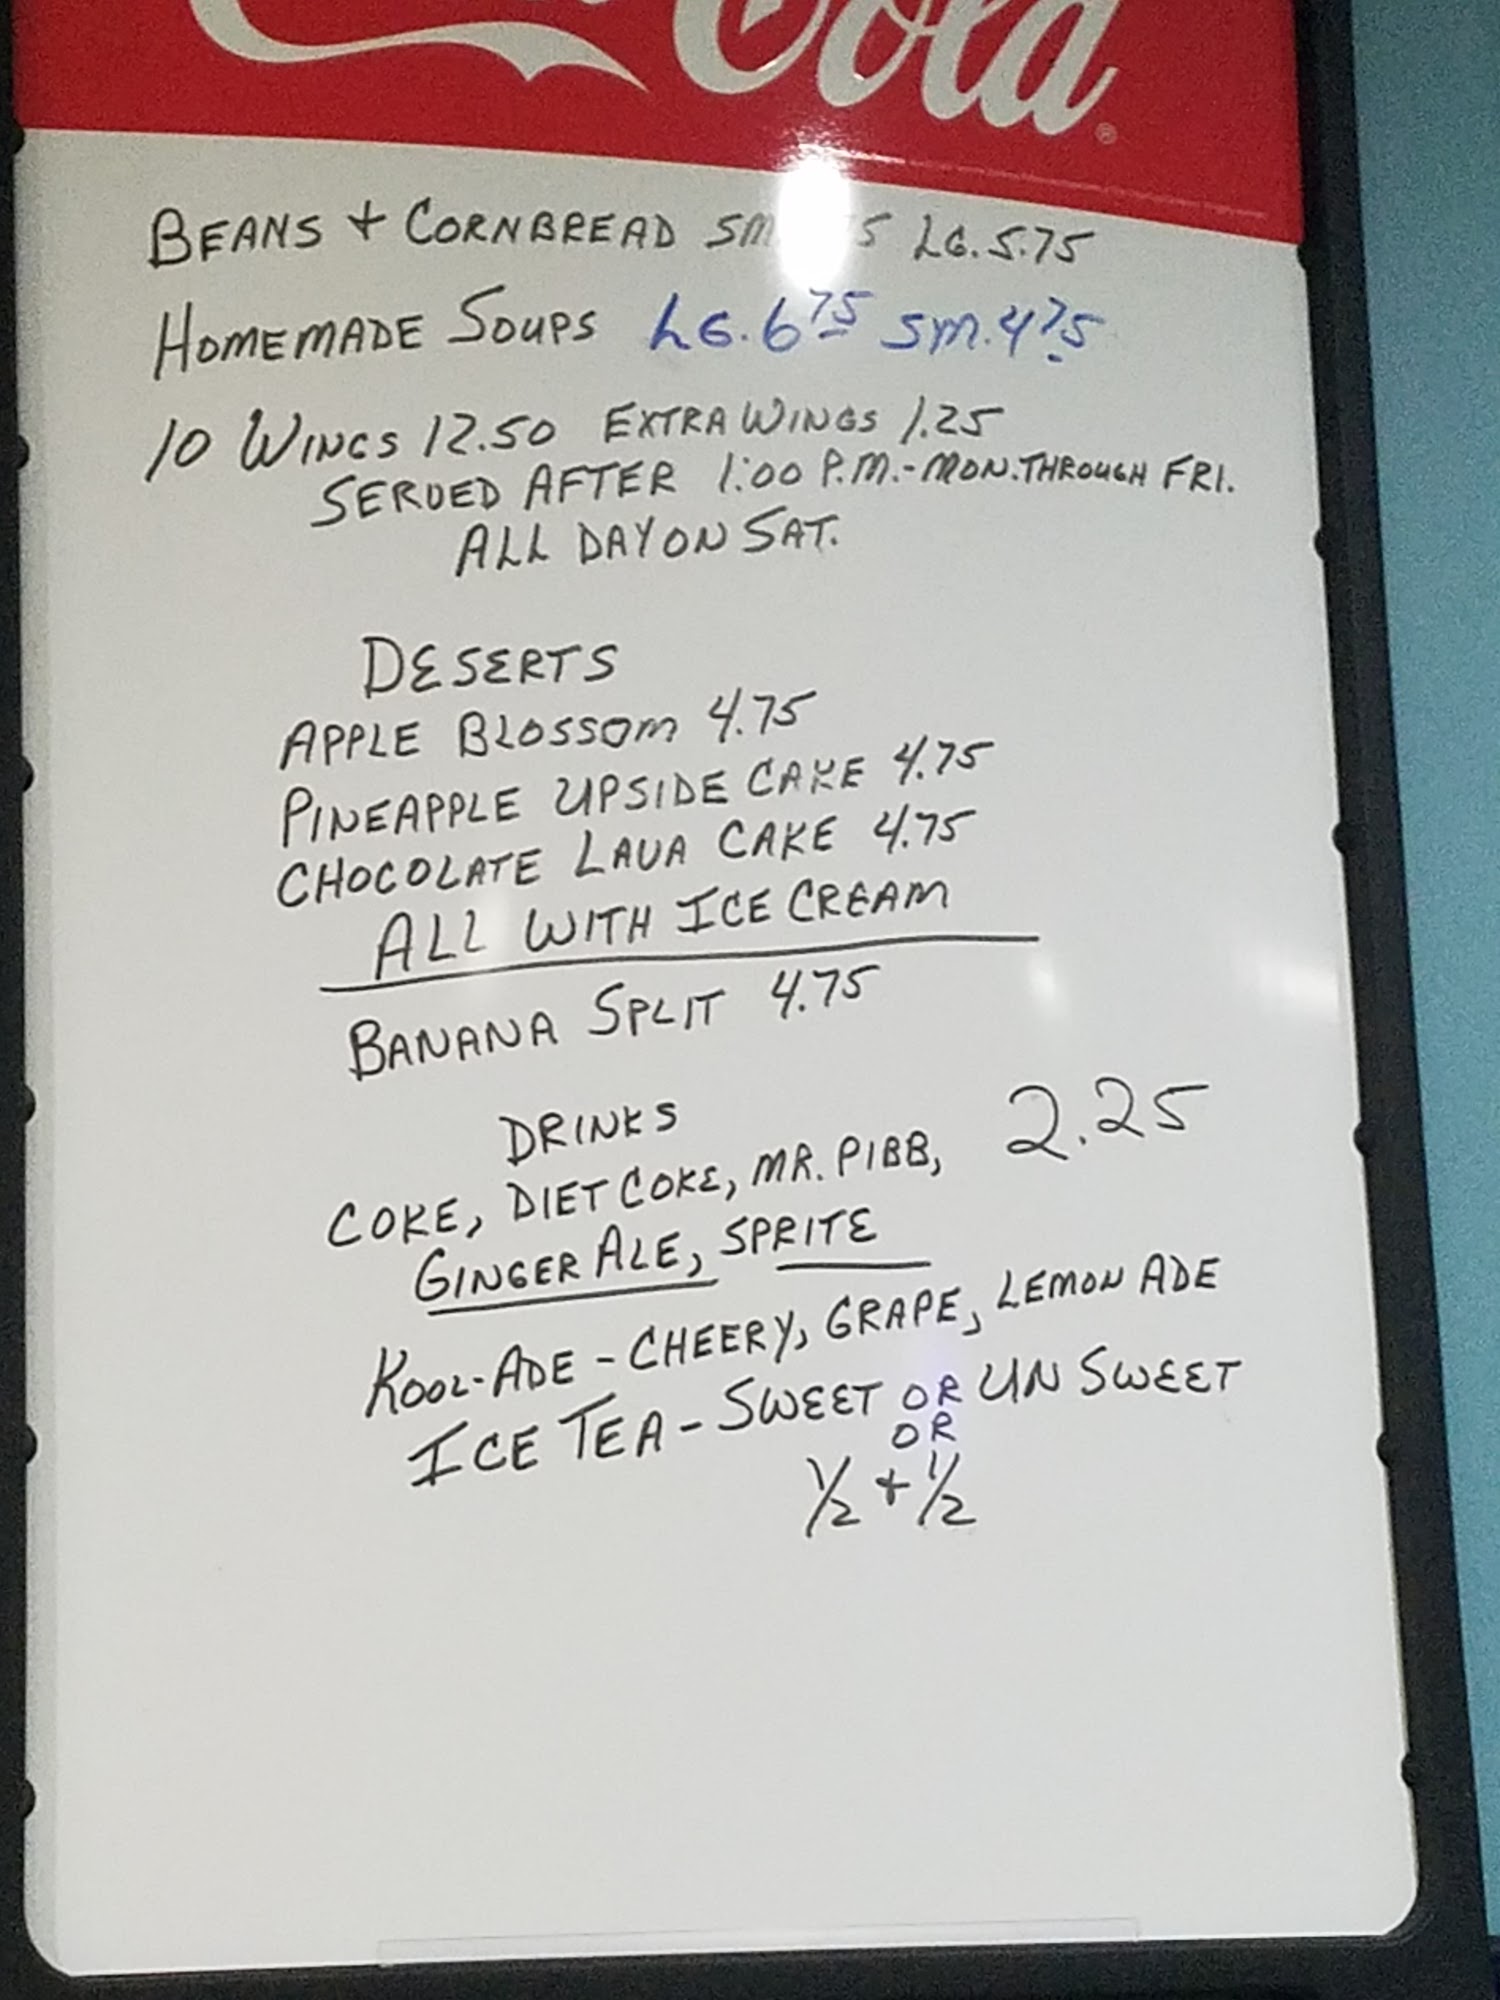 Cola
BEANS + CORNBREAD SM 5 LG. 5.75
HOMEMADE SOUPS LG. 6 75 SM. 4 75
10 WINGS 12.50 EXTRA WINGS 1.25
SERVED AFTER 1:00 P.M. - MON. THROUGH FRI.
ALL DAY ON SAT.
DESERTS
APPLE BLOSSOM 4.75
PINEAPPLE UPSIDE CAKE 4.75
CHOCOLATE LAVA CAKE 4.75
ALL WITH ICE CREAM
BANANA SPLIT 4.75
DRINKS
COKE, DIET COKE, MR. PIBB, 2.25
GINGER ALE, SPRITE
KOOL-ADE - CHEERY, GRAPE, LEMON ADE
ICE TEA - SWEET OR UN SWEET
OR
1/2 + 1/2